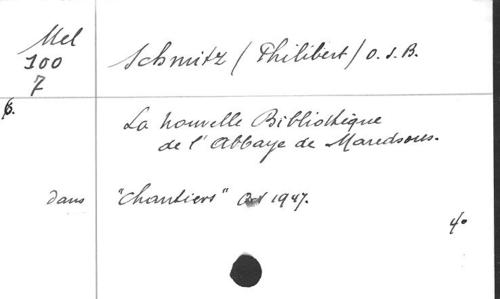 Mel
100
7
Schmitz / Philibert / O.S.B.
6.
La nouvelle Bibliothèque
de l'Abbaye de Maredsous.
dans "Chantiers" Oct 1947.
4°